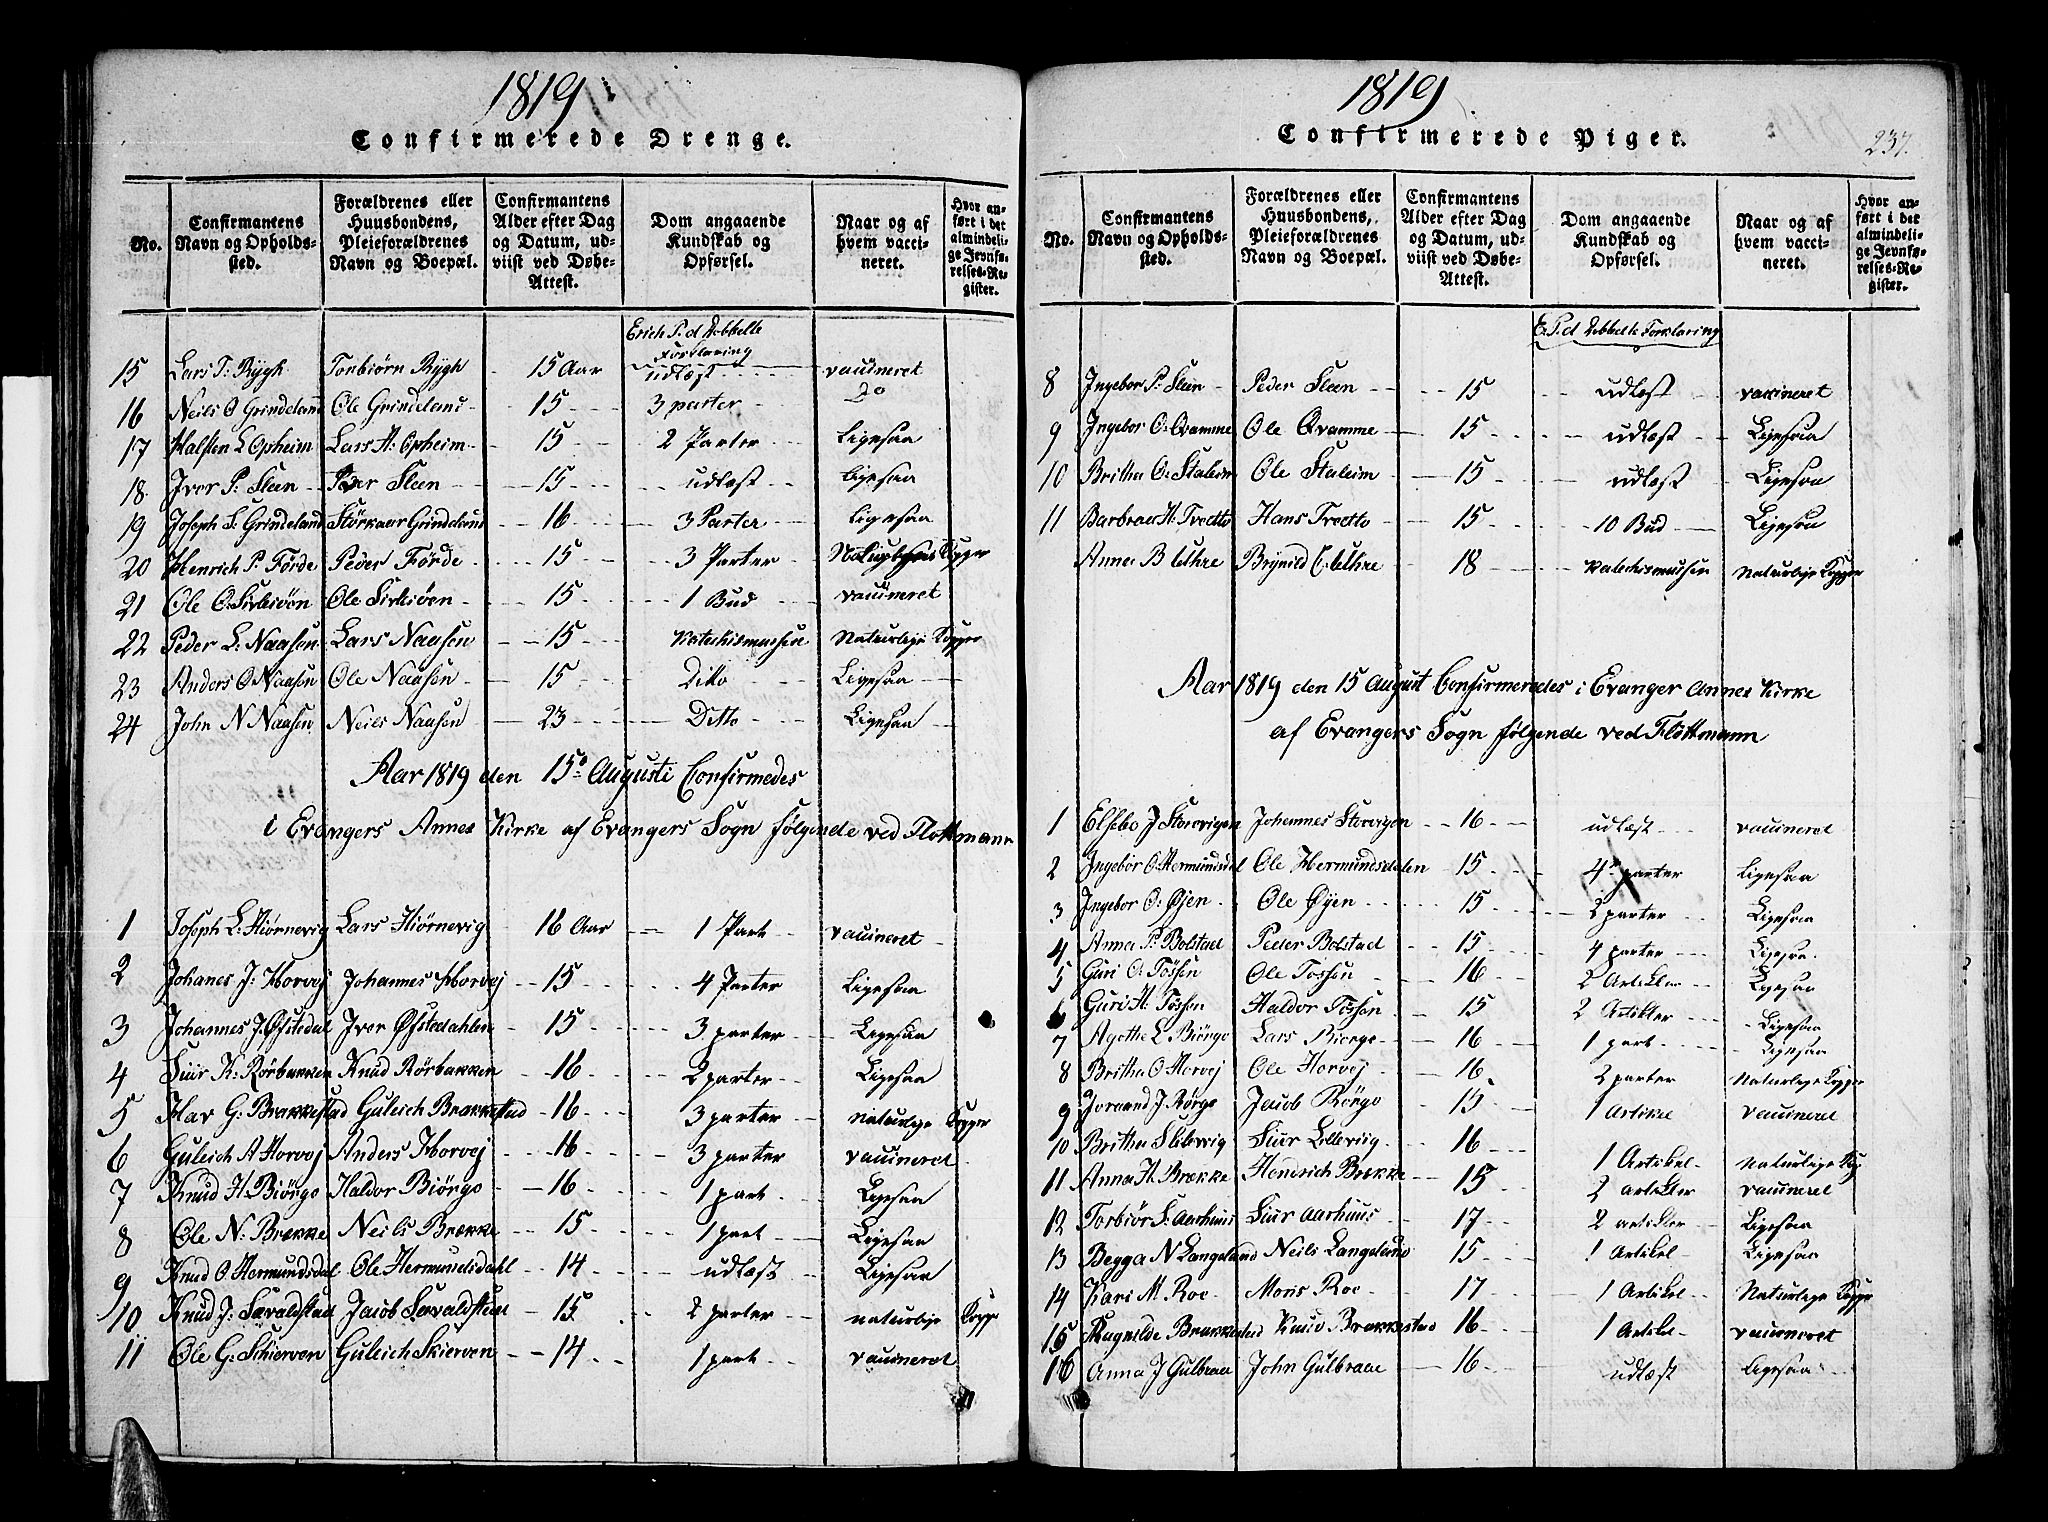 1819
Confirmerede Drenge.
No.
Confirmantens Navn og Opholds-sted.
Forældrenes eller Huusbondens, Pleieforældrenes Navn og Boepæl.
Confirmantens Alder efter Dag og Datum, ud-viist ved Døbe-Attest.
Dom angaaende Kundskab og Opførsel.
Naar og af hvem vacci-neret.
Hvor an-ført i det almindeli-ge Jevnfø-relses-Re-gister.
Erich P.d Dobbelte Forklaring
15 Lars T: Rygh Torbiörn Rygh 15 Aar udlæst vaccineret
16 Neils O Grindeland Ole Grindeland 15 3 parter Do
17 Halsten L Opheim Lars H: Opheim 15 2 Parter Ligesaa
18 Iver P: Fleen Peder Fleen 15 udlæst Ligesaa
19 Joseph S: Grindeland Störkaar Grindeland 16 3 Parter Ligesaa
20 Henrich P: Förde Peder Förde 15 3 Parter Naturlige Kopper
21 Ole O: Ole 15 1 Bud vaccineret
22 Peder L: Naasen Lars Naasen 15 Katechismussen Naturlige Kopper
23 Anders O Naasen Ole Naasen 15 Ditto Ligesaa
24 John N Naasen Neils Naasen 23 Ditto Ligesaa
Aar 1819 den 15de Augusti Confirmedes
i Evangers Annex Kirke af Evangers Sogn følgende ved Flottmann
1 Joseph L: Hiörnevig Lars Hiörnevig 16 Aar 1 Part vaccineret
2 Johanes J: Horvej Johannes Horvej 15 4 Parter Ligesaa
3 Johannes J: Øfstedal Iver Øfstedahlen 15 3 parter Ligesaa
4 Siur K: Rörbakken Knud Rörbakken 16 2 parter Ligesaa
5 G: Brækkestad Guleich Brækkestad 16 3 parter Naturlige Kopper
6 Guleich A Horvej Anders Horvej 16 3 parter vaccineret
7 Knud H: Biörgo Haldor Biörgo 16 1 part Ligesaa
8 Ole N: Brække Neils Brække 15 1 part Ligesaa
9 Knud O Hermundsdal Ole Hermundsdahl 14 udlæst Ligesaa
10 Knud J: Sævaldstad Jacob Sævaldstad 15 2 parter naturlige Kopp
11 Ole G: Skierven Guleich Skierven 14 1 part vaccineret
1819
Confirmerede Piger.
237.
No.
Confirmantens Navn og Opholds-sted.
Forældrenes eller Huusbondens, Pleieforældrenes Navn og Boepæl.
Confirmantens Alder efter Dag og Datum, ud-viist ved Døbe-Attest.
Dom angaaende Kundskab og Opførsel.
Naar og af hvem vacci-neret.
Hvor an-ført i det almindeli-ge Jevnfø-relses-Re-gister.
E. P.d Dobbelte Forklaring
8 Ingebor P: Fleen Peder Fleen 15 udlæst vaccineret
9 Ingebor O: Qvamme Ole Qvamme 15 udlæst Ligesaa
10 Britha O: Staleim Ole Staleim 15 udlæst Ligesaa
11 Barbraa H: Tvedto Hans Tvedto 15 10 Bud Ligesaa
Anna B Uthre Brynild Uthre 18 Katechismussen Naturlige Kopper
Aar 1819 den 15 August Confirmeredes i Evanger Annex Kirke
af Evangers Sogn følgende ved Flottmann
1 Elsebe J Storevigen Johannes Storvigen 16 udlæst vaccineret
2 Ingebor O: Hermunsdal Ole Hermundsdalen 15 4 parter Ligesaa
3 Ingebor O: Øyen Ole Øyen 15 2 parter Ligesaa
4 Anna P: Bolstad Peder Bolstad 15 4 parter Ligesaa
5 Guri O: Tössen Ole Tössen 16 2 Artikler Ligesaa
6 Guri H: Tössen Haldor Tössen 15 2 Artikler Ligesaa
7 Agothe L Biörgo Lars Biörgo 16 1 part Ligesaa
8 Britha O Horvej Ole Horvej 16 2 parter Naturlige Kopper
9 Jorand J Rörgo Jacob Rörgo 15 1 Artikel vaccineret
10 Britha Siur Lillevig 16 1 Artikel Naturlige Kop
11 Anna H Brække Hendrich Brække 15 2 artikler vaccineret
12 Torbiör S: Aarhuus Siur Aarhuus 17 2 artikler Ligesaa
13 Begga N Langeland Neils Langeland 15 1 Artikel Ligesaa
14 Kari M Roe Moris Roe 17 1 Artikel Naturlige Koppe
15 Ragnilde Brækkestad Knud Brækkestad 16 1 Artikel vaccineret
16 Anna J Gulbraae John Gulbraae 16 udlæst Ligesaa